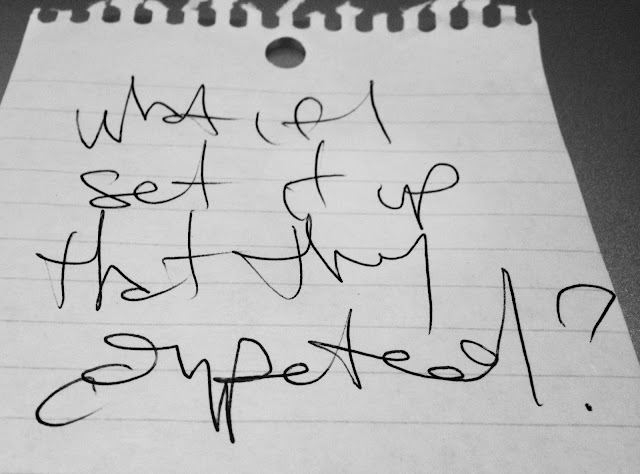 what if I
set it up
that they
competed?